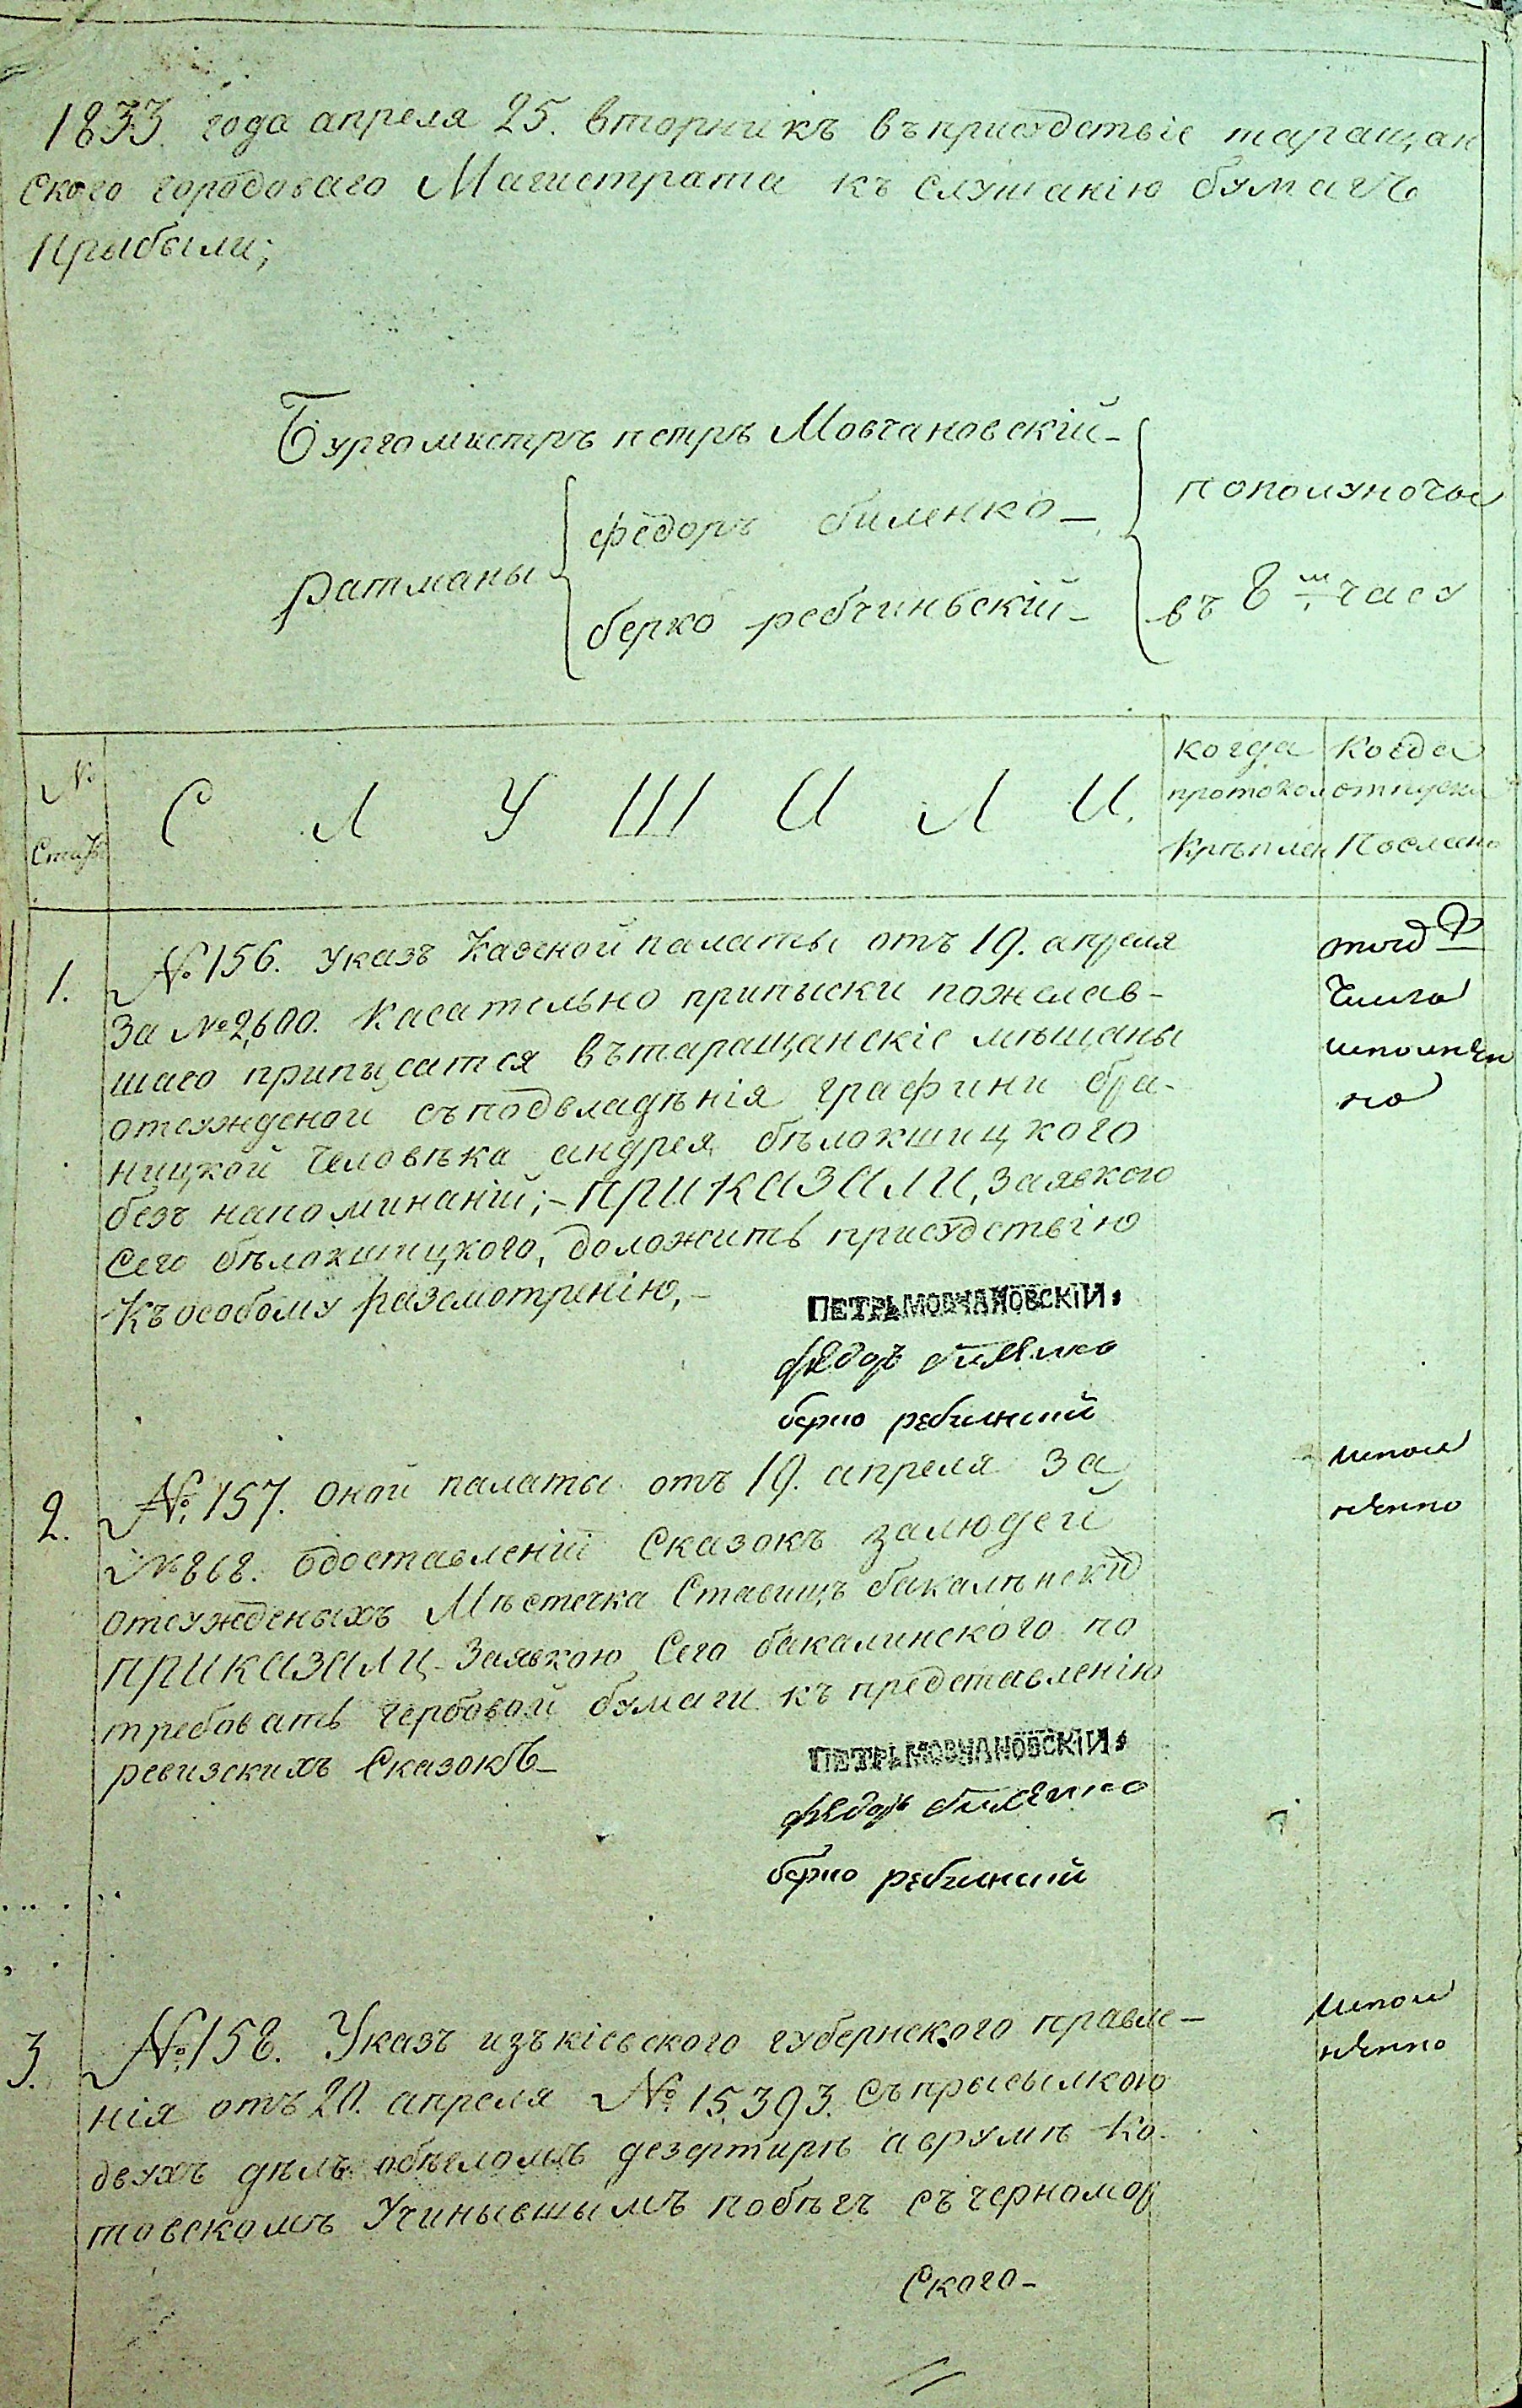 1833. года апреля 25. вторникъ въприсудствіе таращан
ского городоваго Магистрата къ слушанію бумагъ
прыбыли;
Бургомистръ петръ Мовчановскій-
ратманы
федоръ биленко-
берко ребчиньскій-
пополуночы
въ 8 м часу
№
Стат
С Л У Ш И Л И.
когда
протокол
Крѣплен
Когда
отпуски
Послани
1.
№ 156. Указъ Казеной палаты отъ 19. апреля
За № 2,600. Касательно приписки пожелав-
шаго припысатся вътаращанскіе мѣщаны
отсужденой съподвладѣнія графини бра-
ницкой Человѣка андрея бѣлокшицкого
безъ напоминаній;- ПРИКАЗАЛИ, Заявкого
Сего бѣлокшицкого, доложить присудствію
Къособому разсмотренію,-
число
исполнен
но
ПЕТРЬ МОВЧАНОВСКІЙ.
федоръ биленко
берко ребчинский
2.
№ 157. оной палаты отъ 19. апреля За
№ 868. одоставленій Сказокъ залюдей
отсужденыхъ Мѣстечка Ставищъ бакалѣнскій
ПРИКАЗАЛИ- Заявкою Сего бакалинского по
требовать гербовой бумаги къ представленію
ревизскихъ Сказокъ-
испол
ненно
ПЕТРЬ МОВЧАНОВСКІЙ.
федоръ биленко
берко ребчинский
3.
№ 158. Указъ изъкіевского губернского правле-
нія отъ 20. апреля № 15,393. Съпрысылкою
двухъ дѣлъ обѣгломъ дезертирѣ аврумѣ Ко-
товскомъ Учинывшымъ побѣгъ съ черномор
ского-
испол
ненно